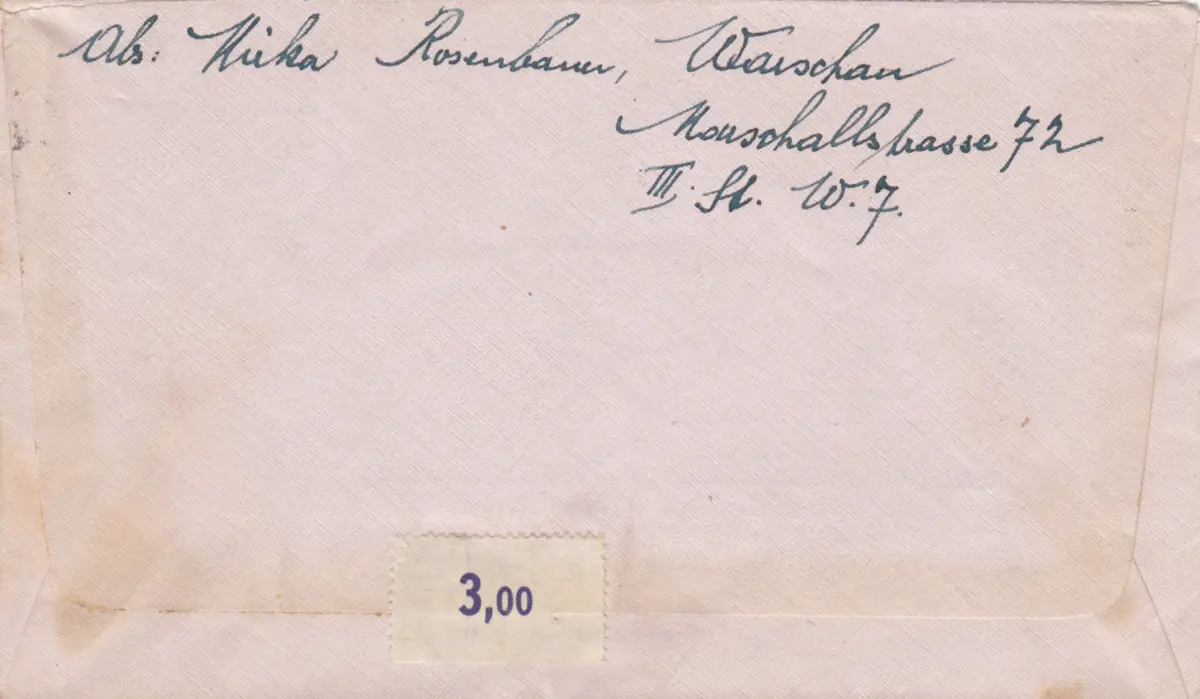 Abs: Mirka Rosenbauer, Warschau
Marschallstrasse 72
III. St. W. 7.
3,00